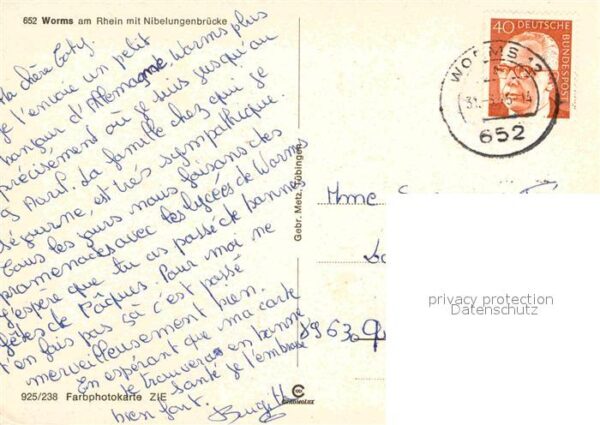 652 Worms am Rhein mit Nibelungenbrücke
Ma chère Caty,
Je t'envoie un petit
bonjour d'Allemagne, Worms plus
précisément où je suis jusqu'au
9 Avril. La famille chez qui je
séjourne, est très sympathique.
Tous les jours nous faisons des
promenades avec les lycées de Worms
J'espère que tu as passé de bonnes
fêtes de Pâques. Pour moi ne
t'en fais pas ça c'est passé
merveilleusement bien.
En espérant que ma carte
te trouveras en bonne
santé je t'embrasse
bien fort. Brigitte
925/238 Farbphotokarte ZIE
CEKUMULUX
Gebr. Metz, Tübingen
40 DEUTSCHE BUNDESPOST
WORMS 12
652
Mme
5963
privacy protection
Datenschutz